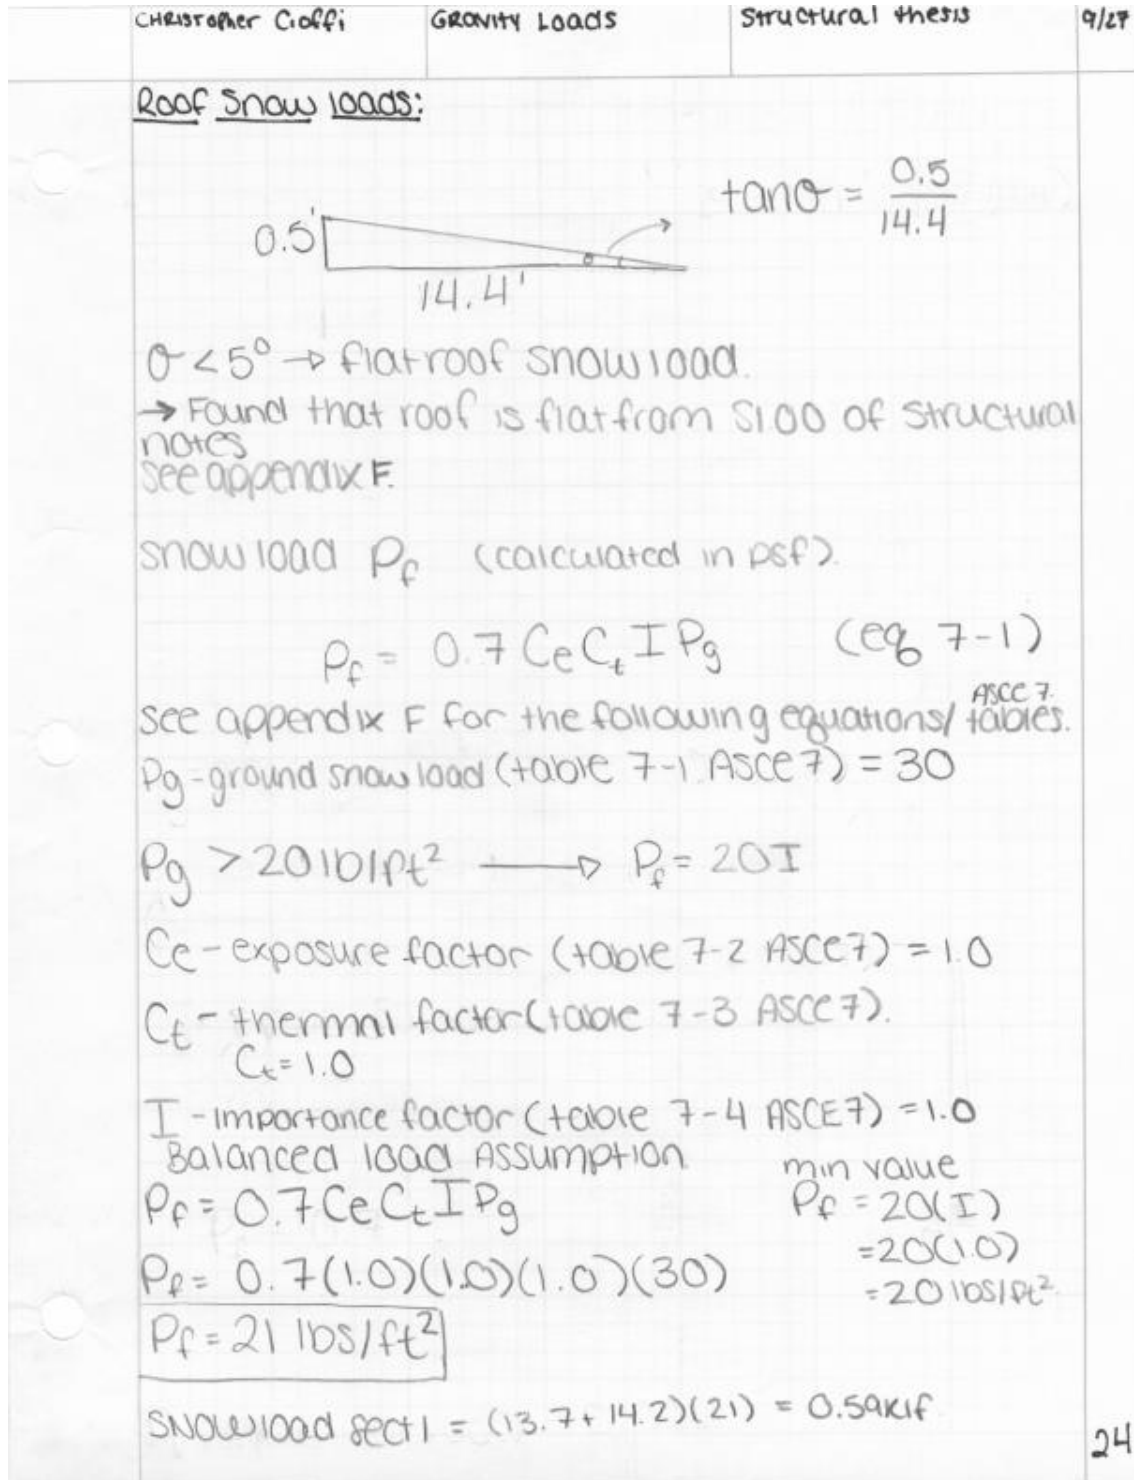 CHRISTOPHER Cioffi GRAVITY LOADS Structural thesis 9/27
Roof Snow loads:
tanθ = 0.5/14.4
0.5'
θ
14.4'
θ < 5° → flat roof snow load.
→ Found that roof is flat from S1.00 of Structural
notes
see appendix F.
snow load Pf (calculated in psf).
Pf = 0.7 Ce Ct I Pg (eq 7-1)
ASCE 7.
see appendix F for the following equations/ tables.
Pg - ground snow load (table 7-1 ASCE 7) = 30
Pg > 20 lb/ft² → Pf = 20I
Ce - exposure factor (table 7-2 ASCE7) = 1.0
Ct - thermal factor (table 7-3 ASCE 7).
Ct = 1.0
I - importance factor (table 7-4 ASCE7) = 1.0
Balanced load Assumption
min value
Pf = 0.7 Ce Ct I Pg
Pf = 20(I)
= 20(1.0)
Pf = 0.7(1.0)(1.0)(1.0)(30)
= 20 lbs/ft²
Pf = 21 lbs/ft²
SNOW load sect 1 = (13.7 + 14.2)(21) = 0.59 klf
24